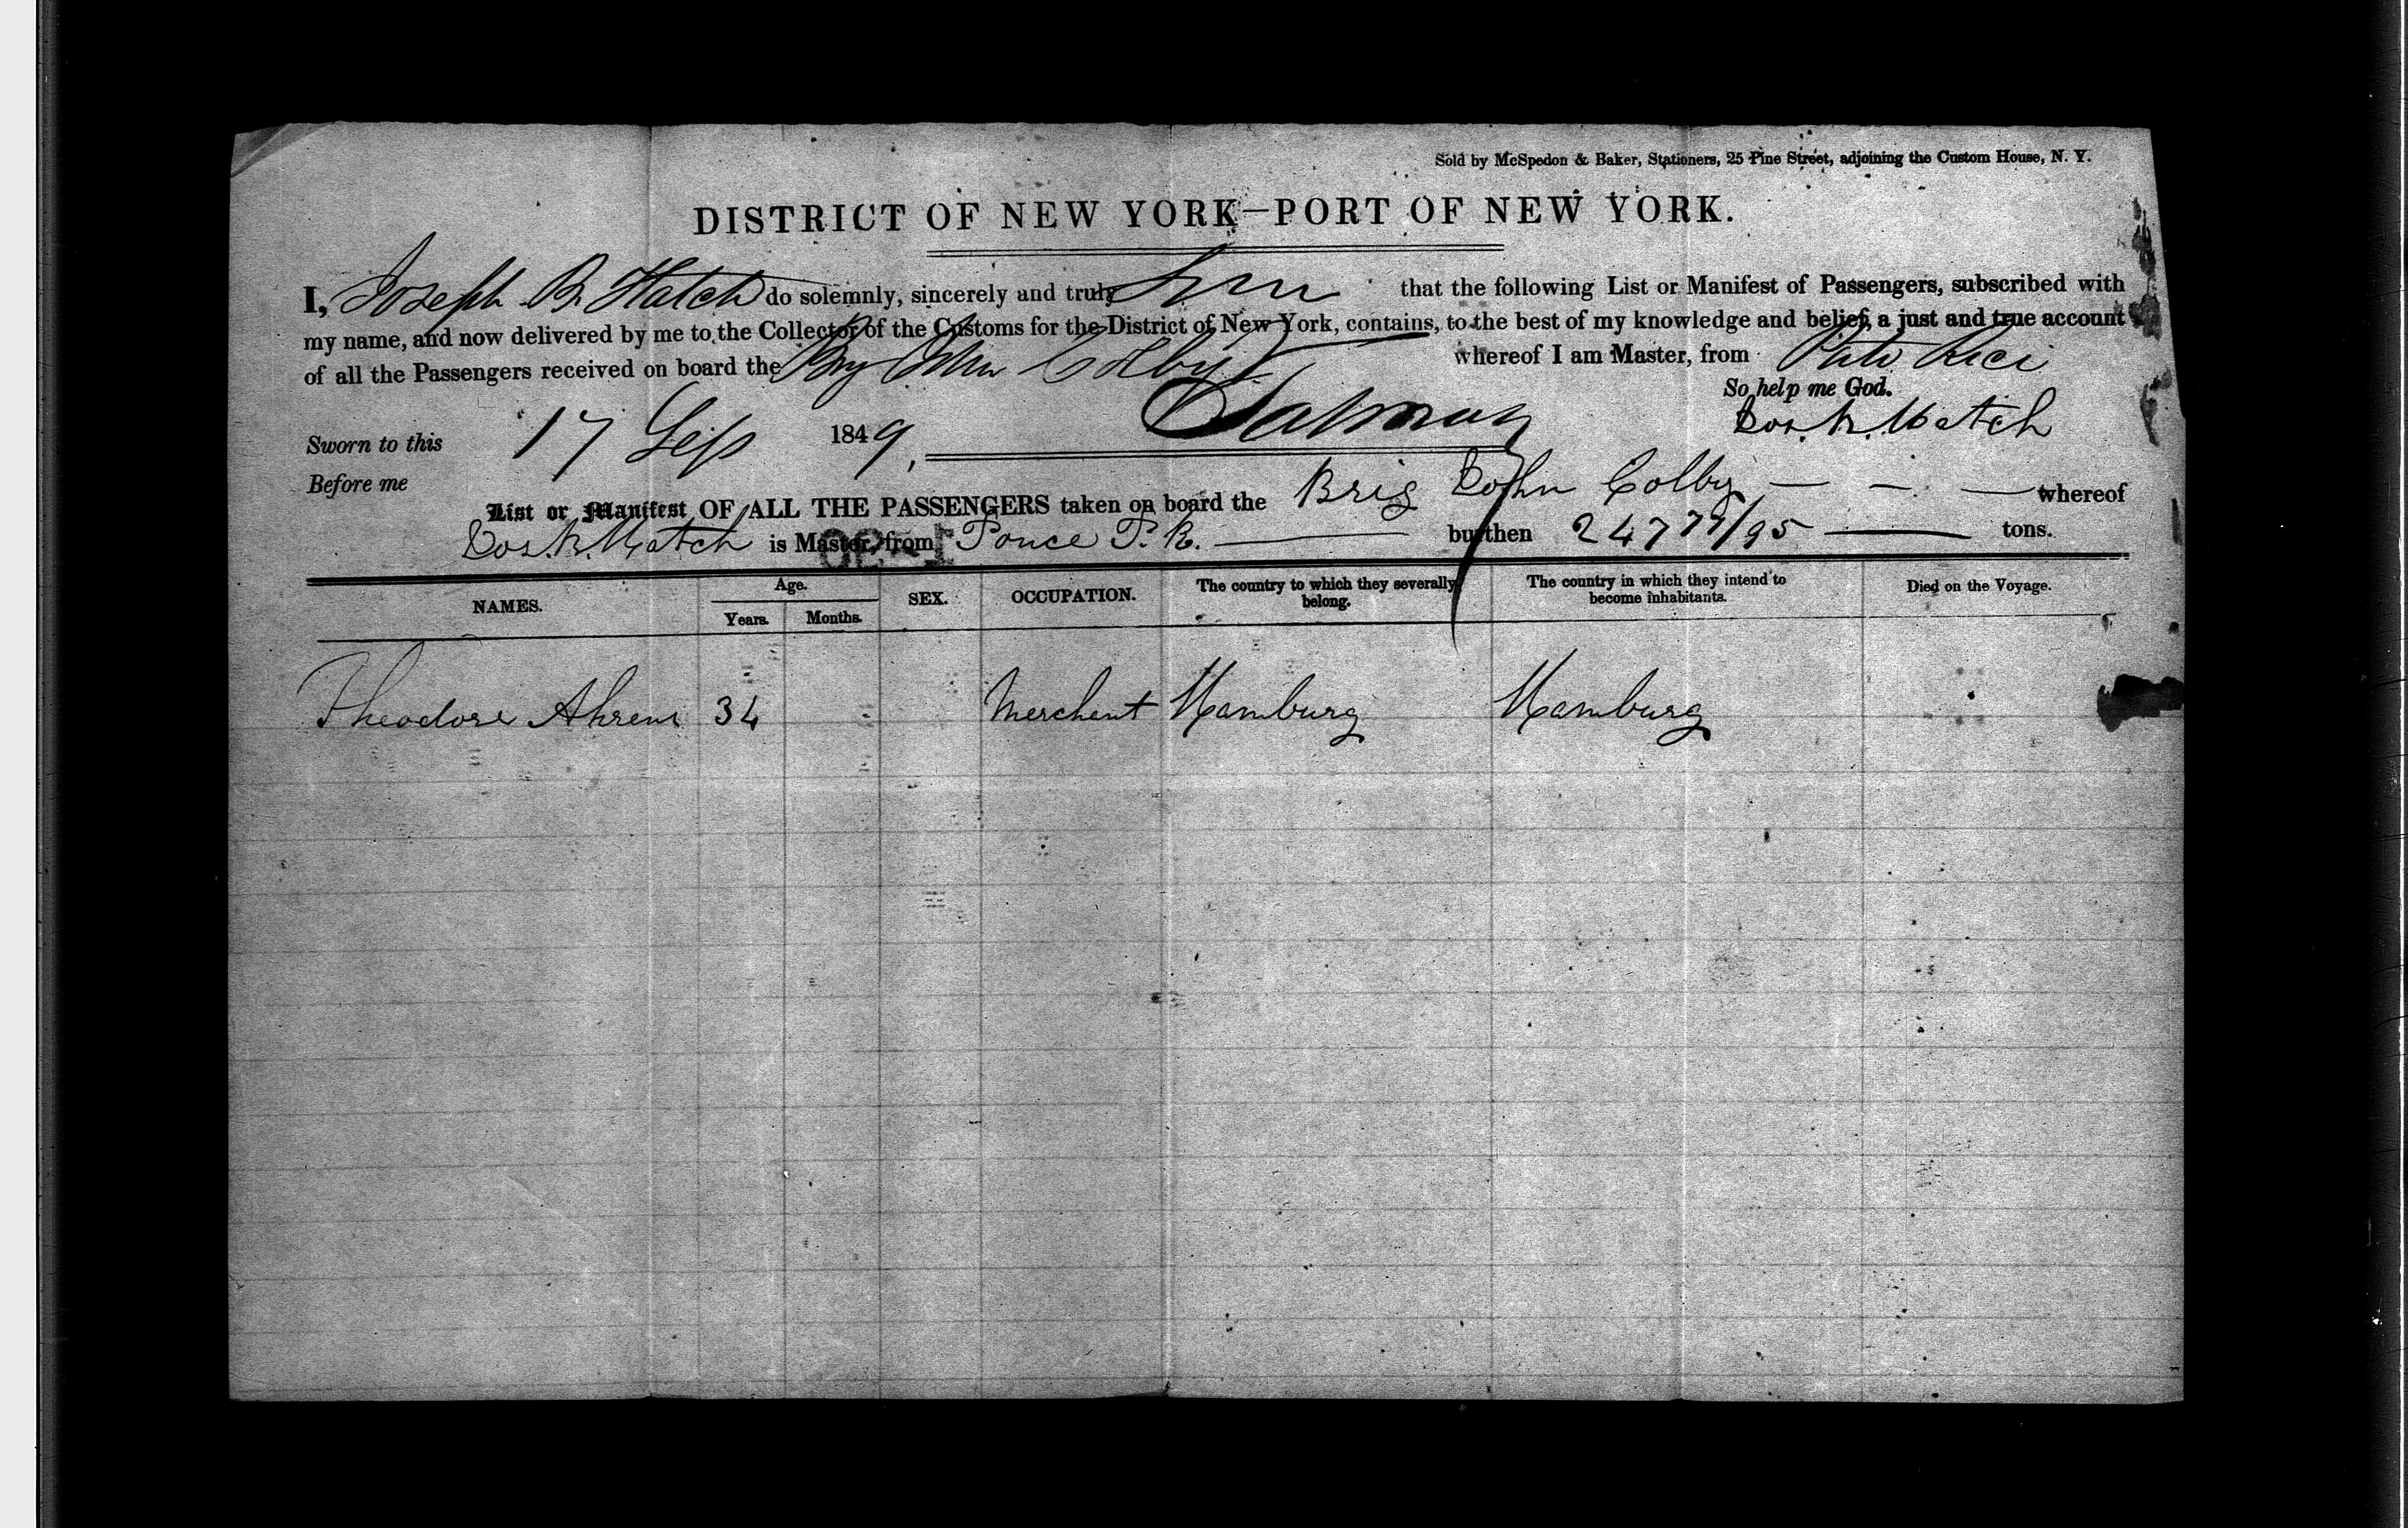 Sold by McSpedon & Baker, Stationers, 25 Pine Street, adjoining the Custom House, N. Y.
DISTRICT OF NEW YORK—PORT OF NEW YORK.
I, Joseph R. Hatch do solemnly, sincerely and truly that the following List or Manifest of Passengers, subscribed with
my name, and now delivered by me to the Collector of the Customs for the District of New York, contains, to the best of my knowledge and belief, a just and true account
of all the Passengers received on board the Brig John Colby whereof I am Master, from Porto Rico
So help me God.
Sworn to this 17 Sep 1849, Jos. R. Hatch
Before me
List or Manifest OF ALL THE PASSENGERS taken on board the Brig John Colby — - — whereof
Jos. R. Hatch is Master, from Ponce P. R. — burthen 247 77/95 — tons.
NAMES. Age. SEX. OCCUPATION. The country to which they severally belong. The country in which they intend to become inhabitants. Died on the Voyage.
Years. Months.
Theodore Ahrens 34 Merchent Hamburg Hamburg